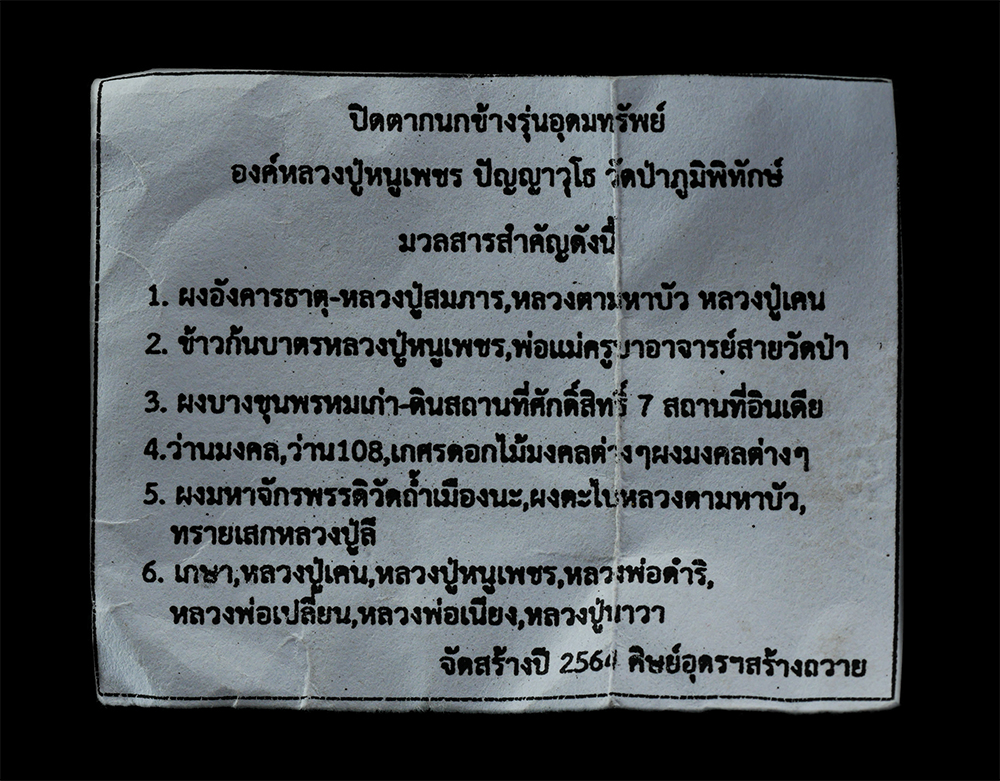 ปิดตากนกข้างรุ่นอุดมทรัพย์
องค์หลวงปู่หนูเพชร ปัญญาวุโธ วัดป่าภูมิพิทักษ์
มวลสารสำคัญดังนี้
1. ผงอังคารธาตุ-หลวงปู่สมภาร,หลวงตามหาบัว หลวงปู่เคน
2. ข้าวก้นบาตรหลวงปู่หนูเพชร,พ่อแม่ครูบาอาจารย์สายวัดป่า
3. ผงบางขุนพรหมเก่า-ดินสถานที่ศักดิ์สิทธิ์ 7 สถานที่อินเดีย
4.ว่านมงคล,ว่าน108,เกศรดอกไม้มงคลต่างๆผงมงคลต่างๆ
5. ผงมหาจักรพรรดิวัดถ้ำเมืองนะ,ผงตะไบหลวงตามหาบัว,
ทรายเสกหลวงปู่ลี
6. เกษา,หลวงปู่เคน,หลวงปู่หนูเพชร,หลวงพ่อดำริ,
หลวงพ่อเปลี่ยน,หลวงพ่อเนียง,หลวงปู่บาวา
จัดสร้างปี 2564 ศิษย์อุดรฯสร้างถวาย